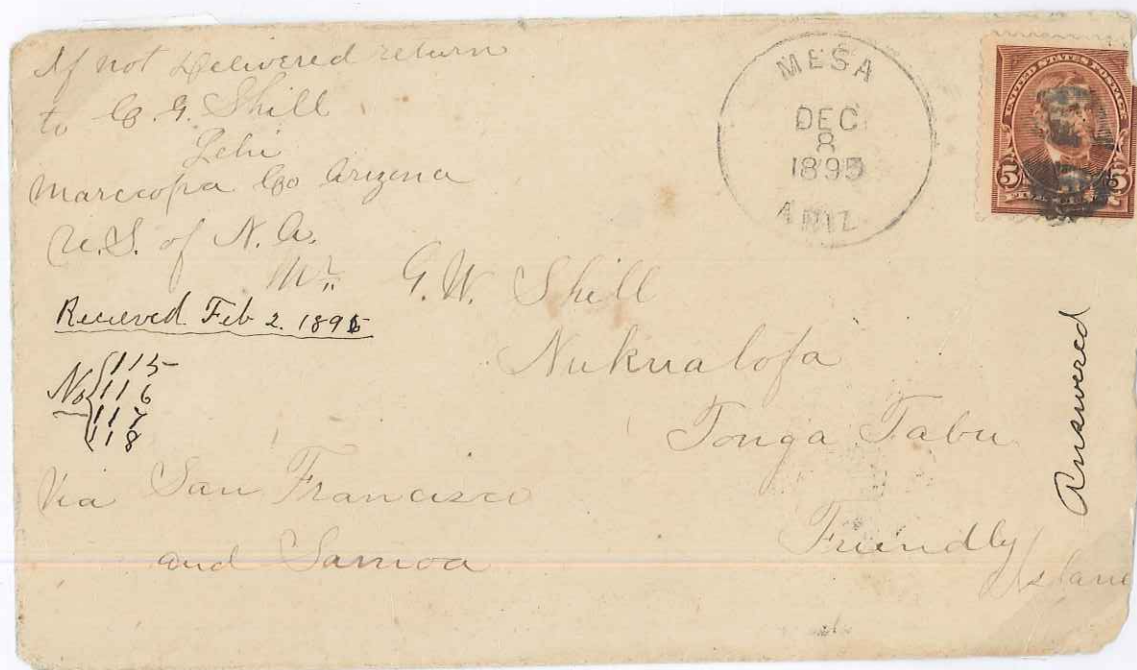 If not Delivered return
to C. G. Shill
Lehi
Marecopa Co Arizona
U.S. of N.A.
MESA
DEC
8
1895
ARIZ
UNITED STATES POSTAGE
5 5
Mr. G. W. Shill
Nukualofa
Tonga Tabu
Friendly
Islane
Recieved Feb 2. 1896
No 115
116
117
118
Via San Francisco
and Samoa
Answered